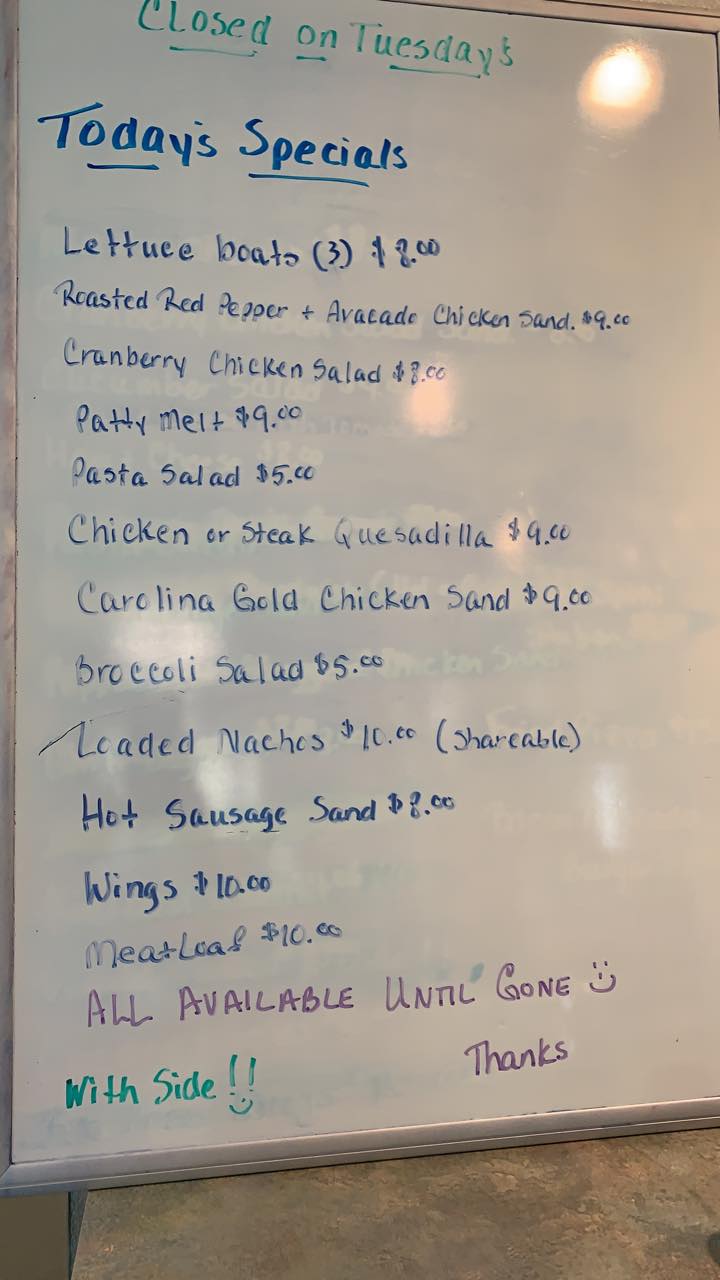 Closed on Tuesday's
Today's Specials
Lettuce boats (3) $8.00
Roasted Red Pepper + Avacado Chicken Sand. $9.00
Cranberry Chicken Salad $8.00
Patty Melt $9.00
Pasta Salad $5.00
Chicken or Steak Quesadilla $9.00
Carolina Gold Chicken Sand $9.00
Broccoli Salad $5.00
Loaded Nachos $10.00 (Shareable)
Hot Sausage Sand $8.00
Wings $10.00
Meatloaf $10.00
ALL AVAILABLE UNTIL GONE
Thanks
With Side!!